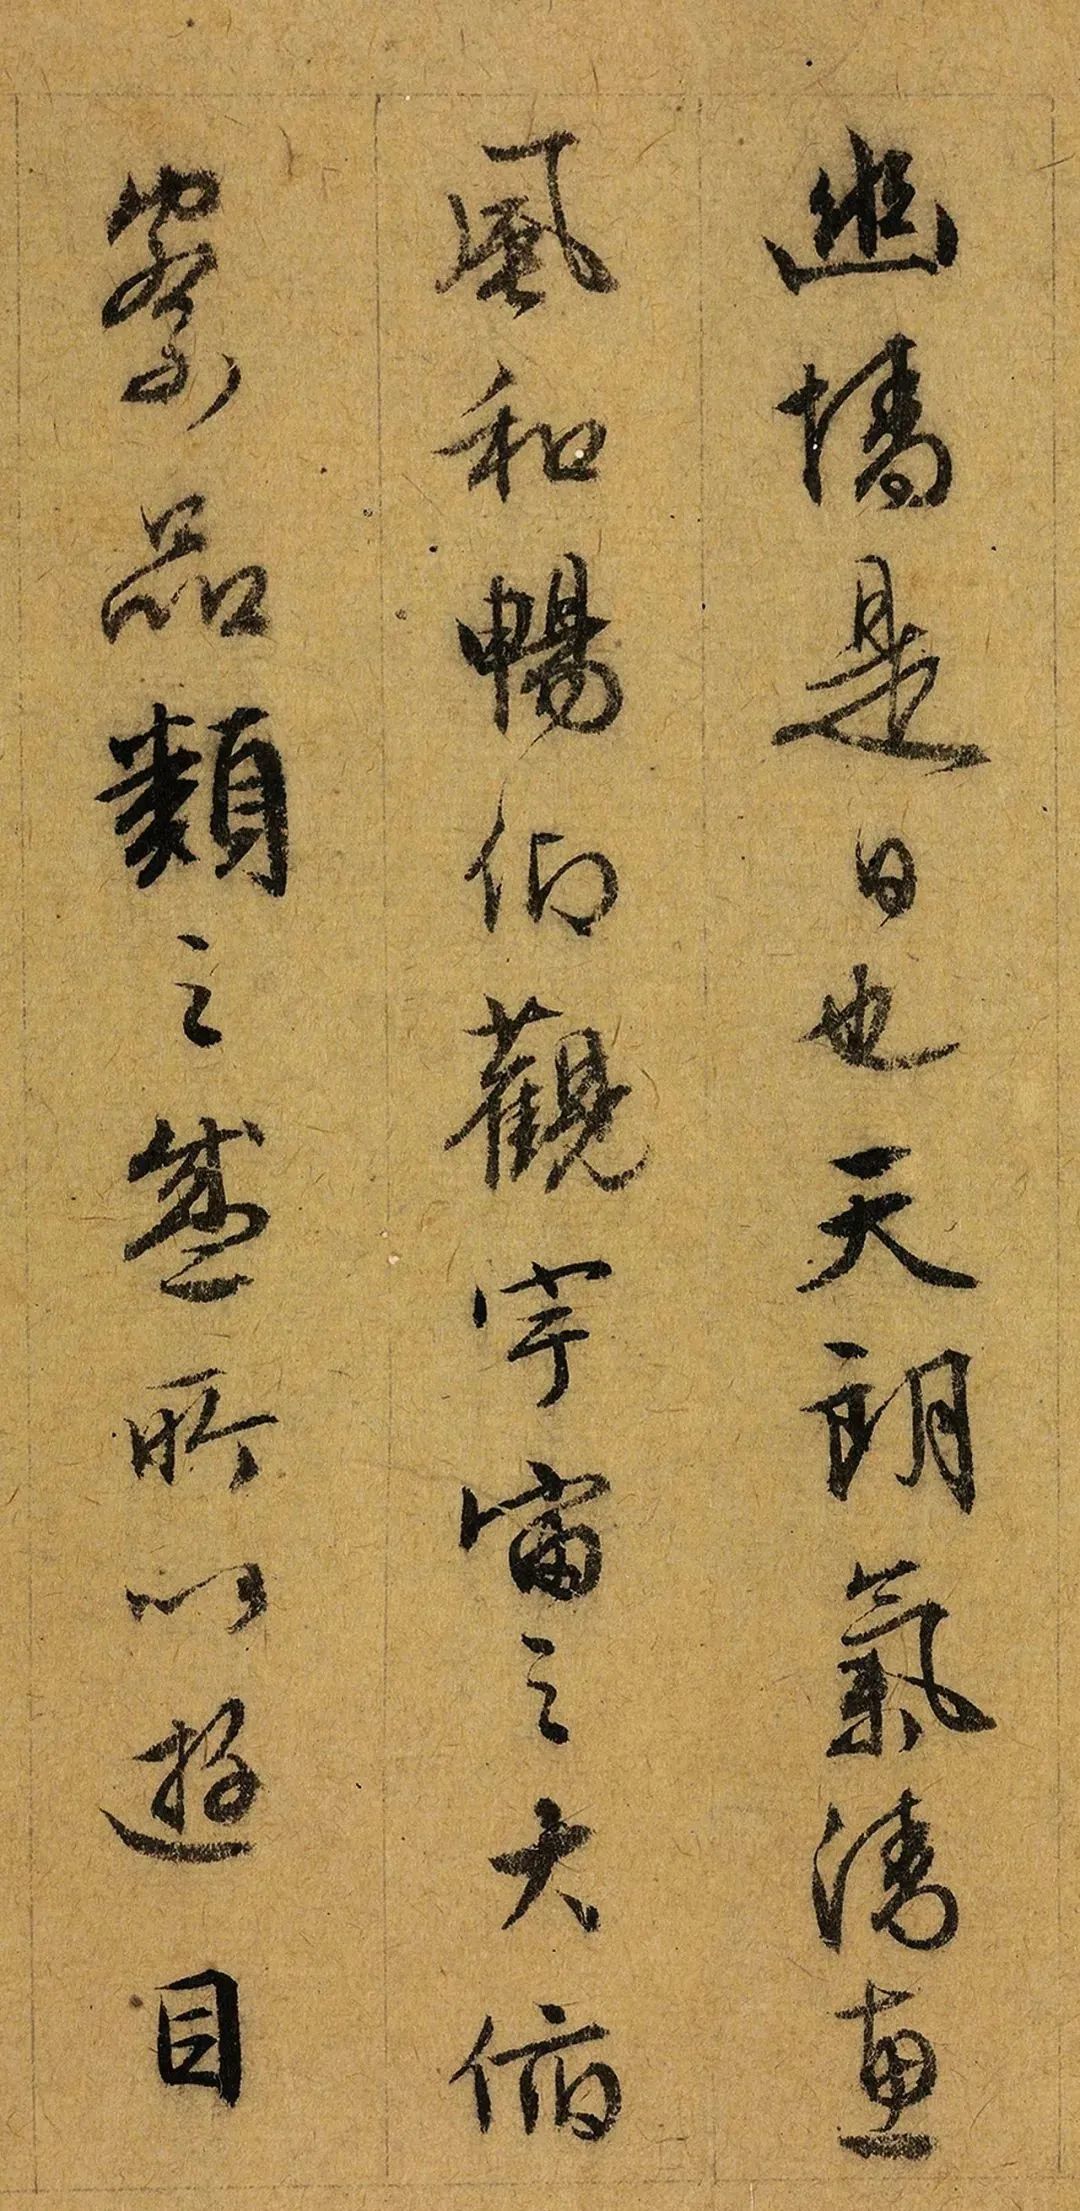 幽情是日也天朗氣清惠
風和暢仰觀宇宙之大俯
察品類之盛所以遊目